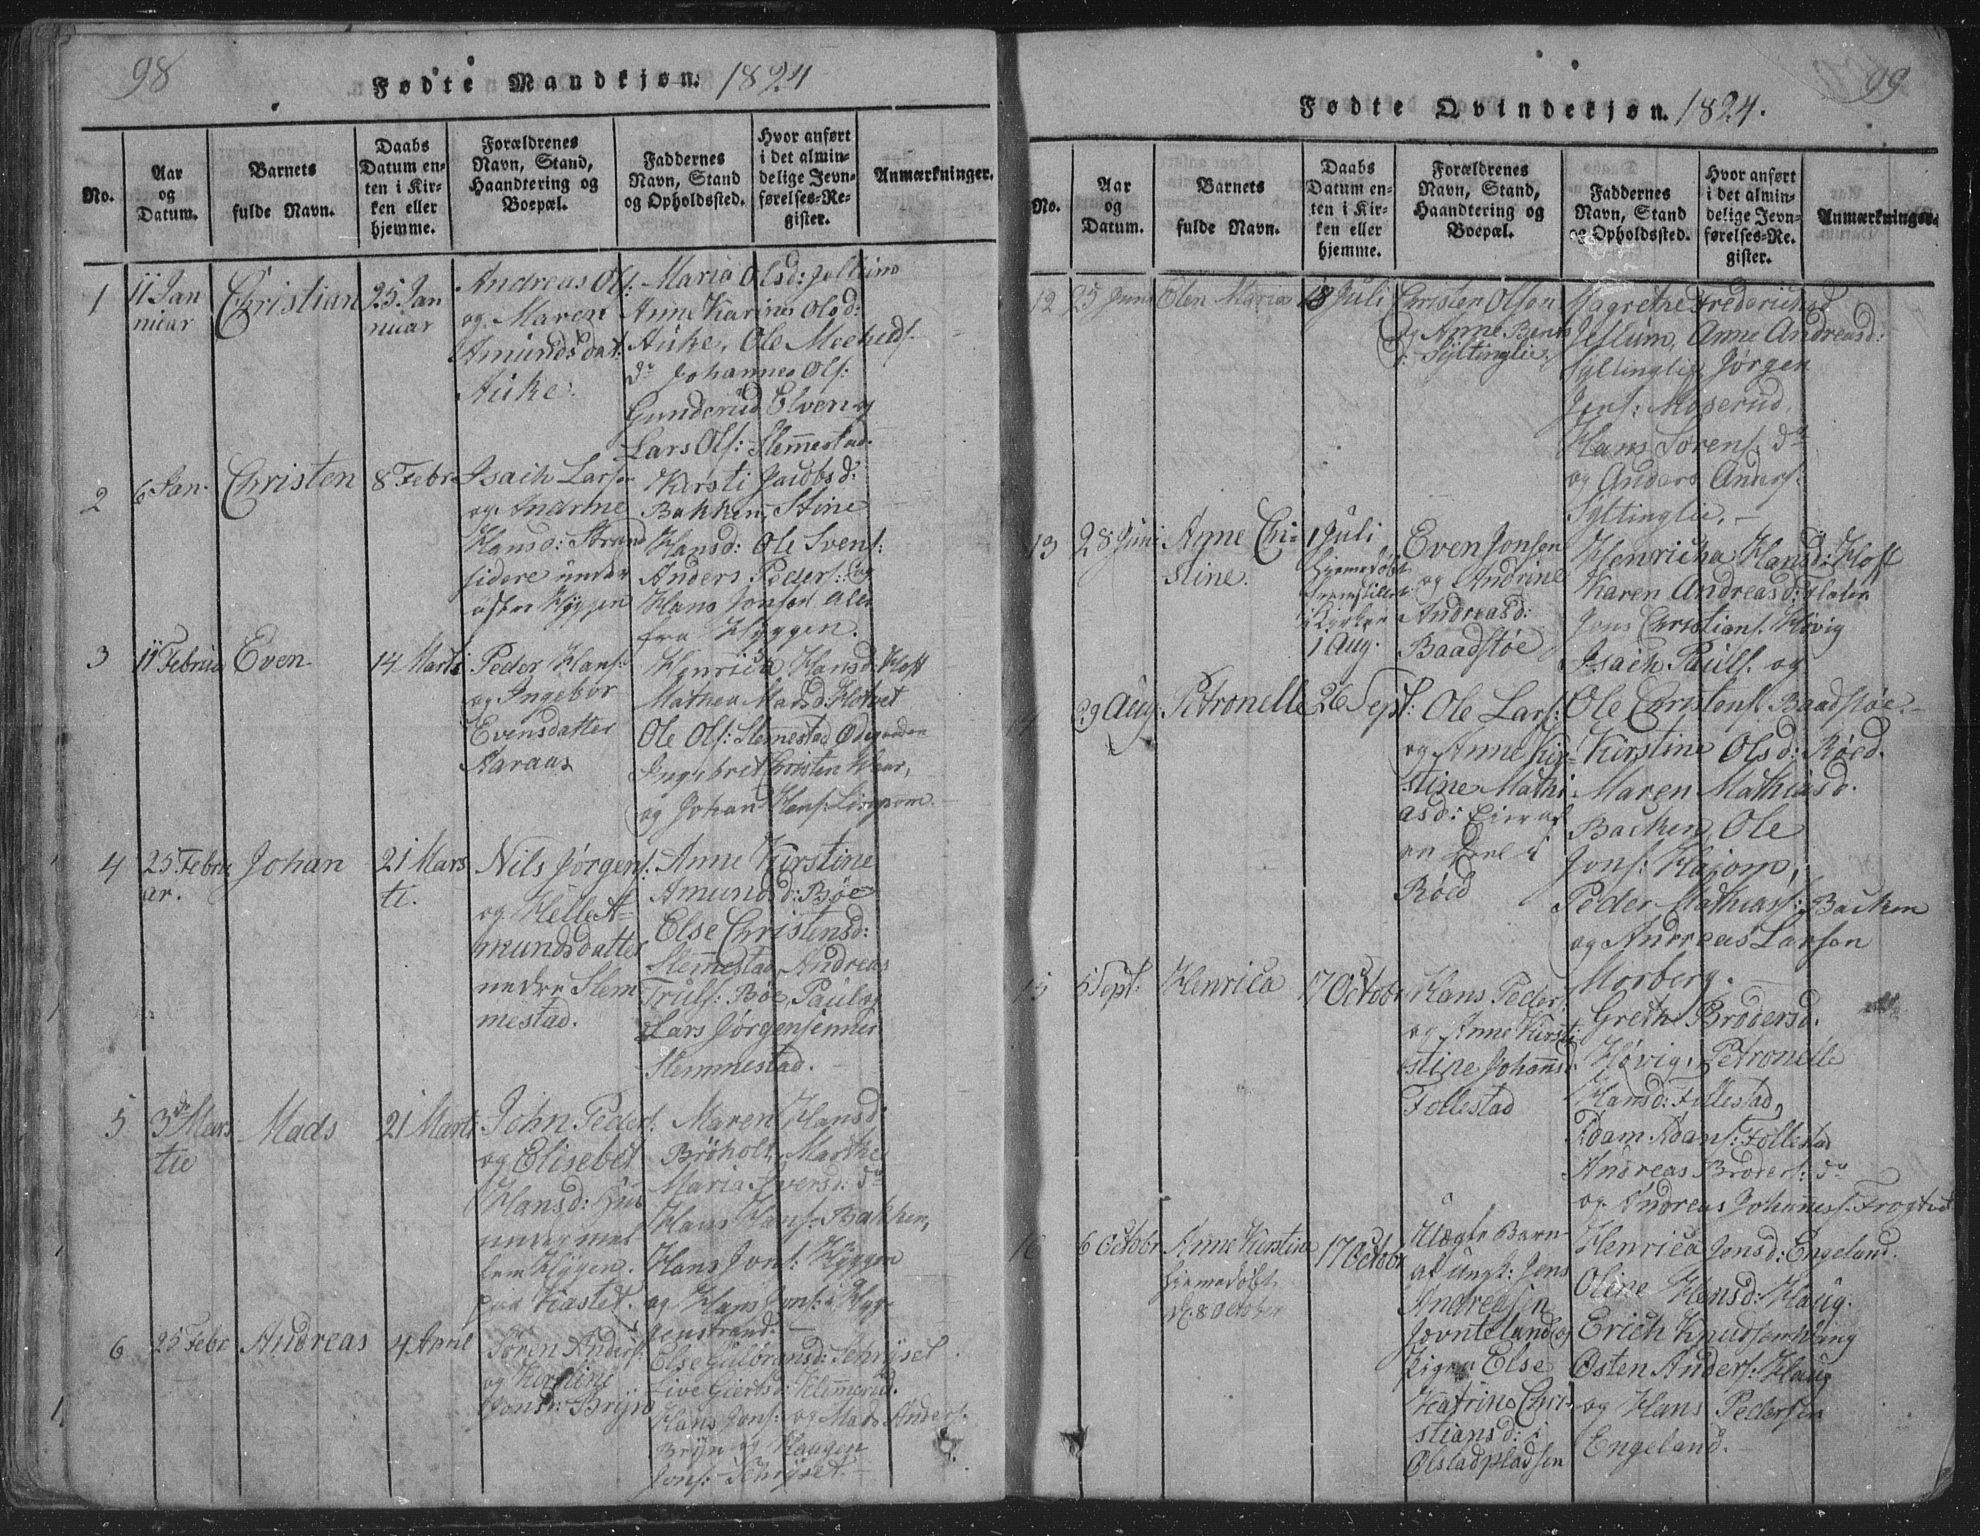 98
Fødte Mandkjøn. 1824
No.
Aar
og
Datum.
Barnets
fulde Navn.
Daabs
Datum en-
ten i Kir-
ken eller
hjemme.
Forældrenes
Navn, Stand,
Haandtering og
Boepæl.
Faddernes
Navn, Stand
og Opholdssted.
Hvor anført
i det almin-
delige Jevn-
førelses-Re-
gister.
Anmærkninger.
1
11 Jan
nuar
Christian
25 Jan
nuar
Andreas Ols:
og Maren
Amunds dat:
Auke.
Maria Olsd:
Anne Karine Olsd:
Auke, Ole
do Johannes Ols:
Gunderud Elven og
Lars Ols: Slem̅estad.
2
6 Jan.
Christen
8 Febr
Isach Larsen
og Andrine
Hansd: Strand
sidere under
østen Hyggen
Kirsti Jacobsd:
Bakken, Stine
Hansd: Ole Svens:
Anders Peders: og
Hans Jonsen alle
fra Hyggen.
3
11 Februa
Even
14 Marti
Peder Hans:
og Ingebor
Evensdatter
Aaraas
Henrica Hansd: Hoft
Mathea Madsd:
Ole Ols: Slem̅estad Ødegaarden
Ingebret Christen
og Johan Hans:
4
25 Febru
ar.
Johan
21 Mars
ti.
Nils Jørgens:
og Helle A-
mundsdatter
nedre Slem
mestad.
Anne Kirstine
Amundsd: Bøe
Else Christensd:
Slem̅estad, Andreas
Truls: Bøe, Paul og
Lars Jørgensenner
Slemmestad.
5
3de Mars
tii
Mads
21 Marti
John Peders:
og Elisebet
Hansd: Huus
under mel
lem Hygen.
Maren Hansd:
Brøholt, Marthe
Maria Iversd: do
Hans Hans: Bakken,
Hans Jons: Hyggen
og Hans Jons: i Hyg-
genstrand.
6
25 Febr
Andreas
4 April
Søren Anders:
og Kirstine
Jonsd: Brÿn
Else Gulbransd: Schrÿset
Live Giertsd:
Hans Jons: og Mads Anders:
Brÿn og Haagen
Jons: Schrÿset.
99
Fødte Qvindekjøn. 1824.
No.
Aar
og
Datum.
Barnets
fulde Navn.
Daabs
Datum en-
ten i Kir-
ken eller
hjemme.
Forældrenes
Navn, Stand,
Haandtering og
Boepæl.
Faddernes
Navn, Stand
og Opholdssted.
Hvor anført
i det almin-
delige Jevn-
førelses-Re-
gister.
Anmærkninger.
12
25 Juni
Elen Maria
18 Juli
Christen Olsen
og Anne
Syltinglie,
Magrethe Fredericksd
Jellum, Anne Andreasd:
Syltinglie, Jørgen
Jens: Moserud,
Hans Sørens: do
og Anders Anders:
Syltinglie.
13
28 Juni
Anne Chi-
stine.
1 Juli
hjemedøbt
fremstillet
i Kirken
1 Aug.
Even Jonsen
og Andrine
Andreasd:
Baadstøe
Henricha Hansd: Hoft
Karen Andreasd:
Jens Christians: Høvig
Isach Pauls: og
Ole Christens: Baadstøe.
14
29 Aug.
Petronelle
26 Sept:
Ole Lars:
og Anne Kir-
stine Mathi
asd: Eier af
en Deel i
Røed
Kirstine Olsd: Røed.
Maren Mathiasd.
Backen, Ole
Jens: Hajom,
Peder Mathias: Backen
og Andreas Larsen
Morberg.
15
5 Sept:
Henrica
17 Octobr
Hans Peder:
og Anne Kirsti
stine Johan̅sd
Follestad
Grethe Brødersd:
Høvig, Petronelle
Hansd: Follestad,
Adam Adams: Follestad
Andreas Brøders: do
og Andreas Johan̅ess: Frogtvet
16
6 Octobr
Anne Kirstine
hjemedøbt
d. 8 October
17 Octobr
Uægte Barn
af Ungk: Jens
Andreasen
Jovnteland og
Pigen Else
Katrine Chri-
stiansd: i
Olstadpladsen
Henrica Jensd: Engeland.
Oline Hansd: Haug.
Erich Knudsen
Osten Anders: Haug
og Hans Pedersen
Engeland.